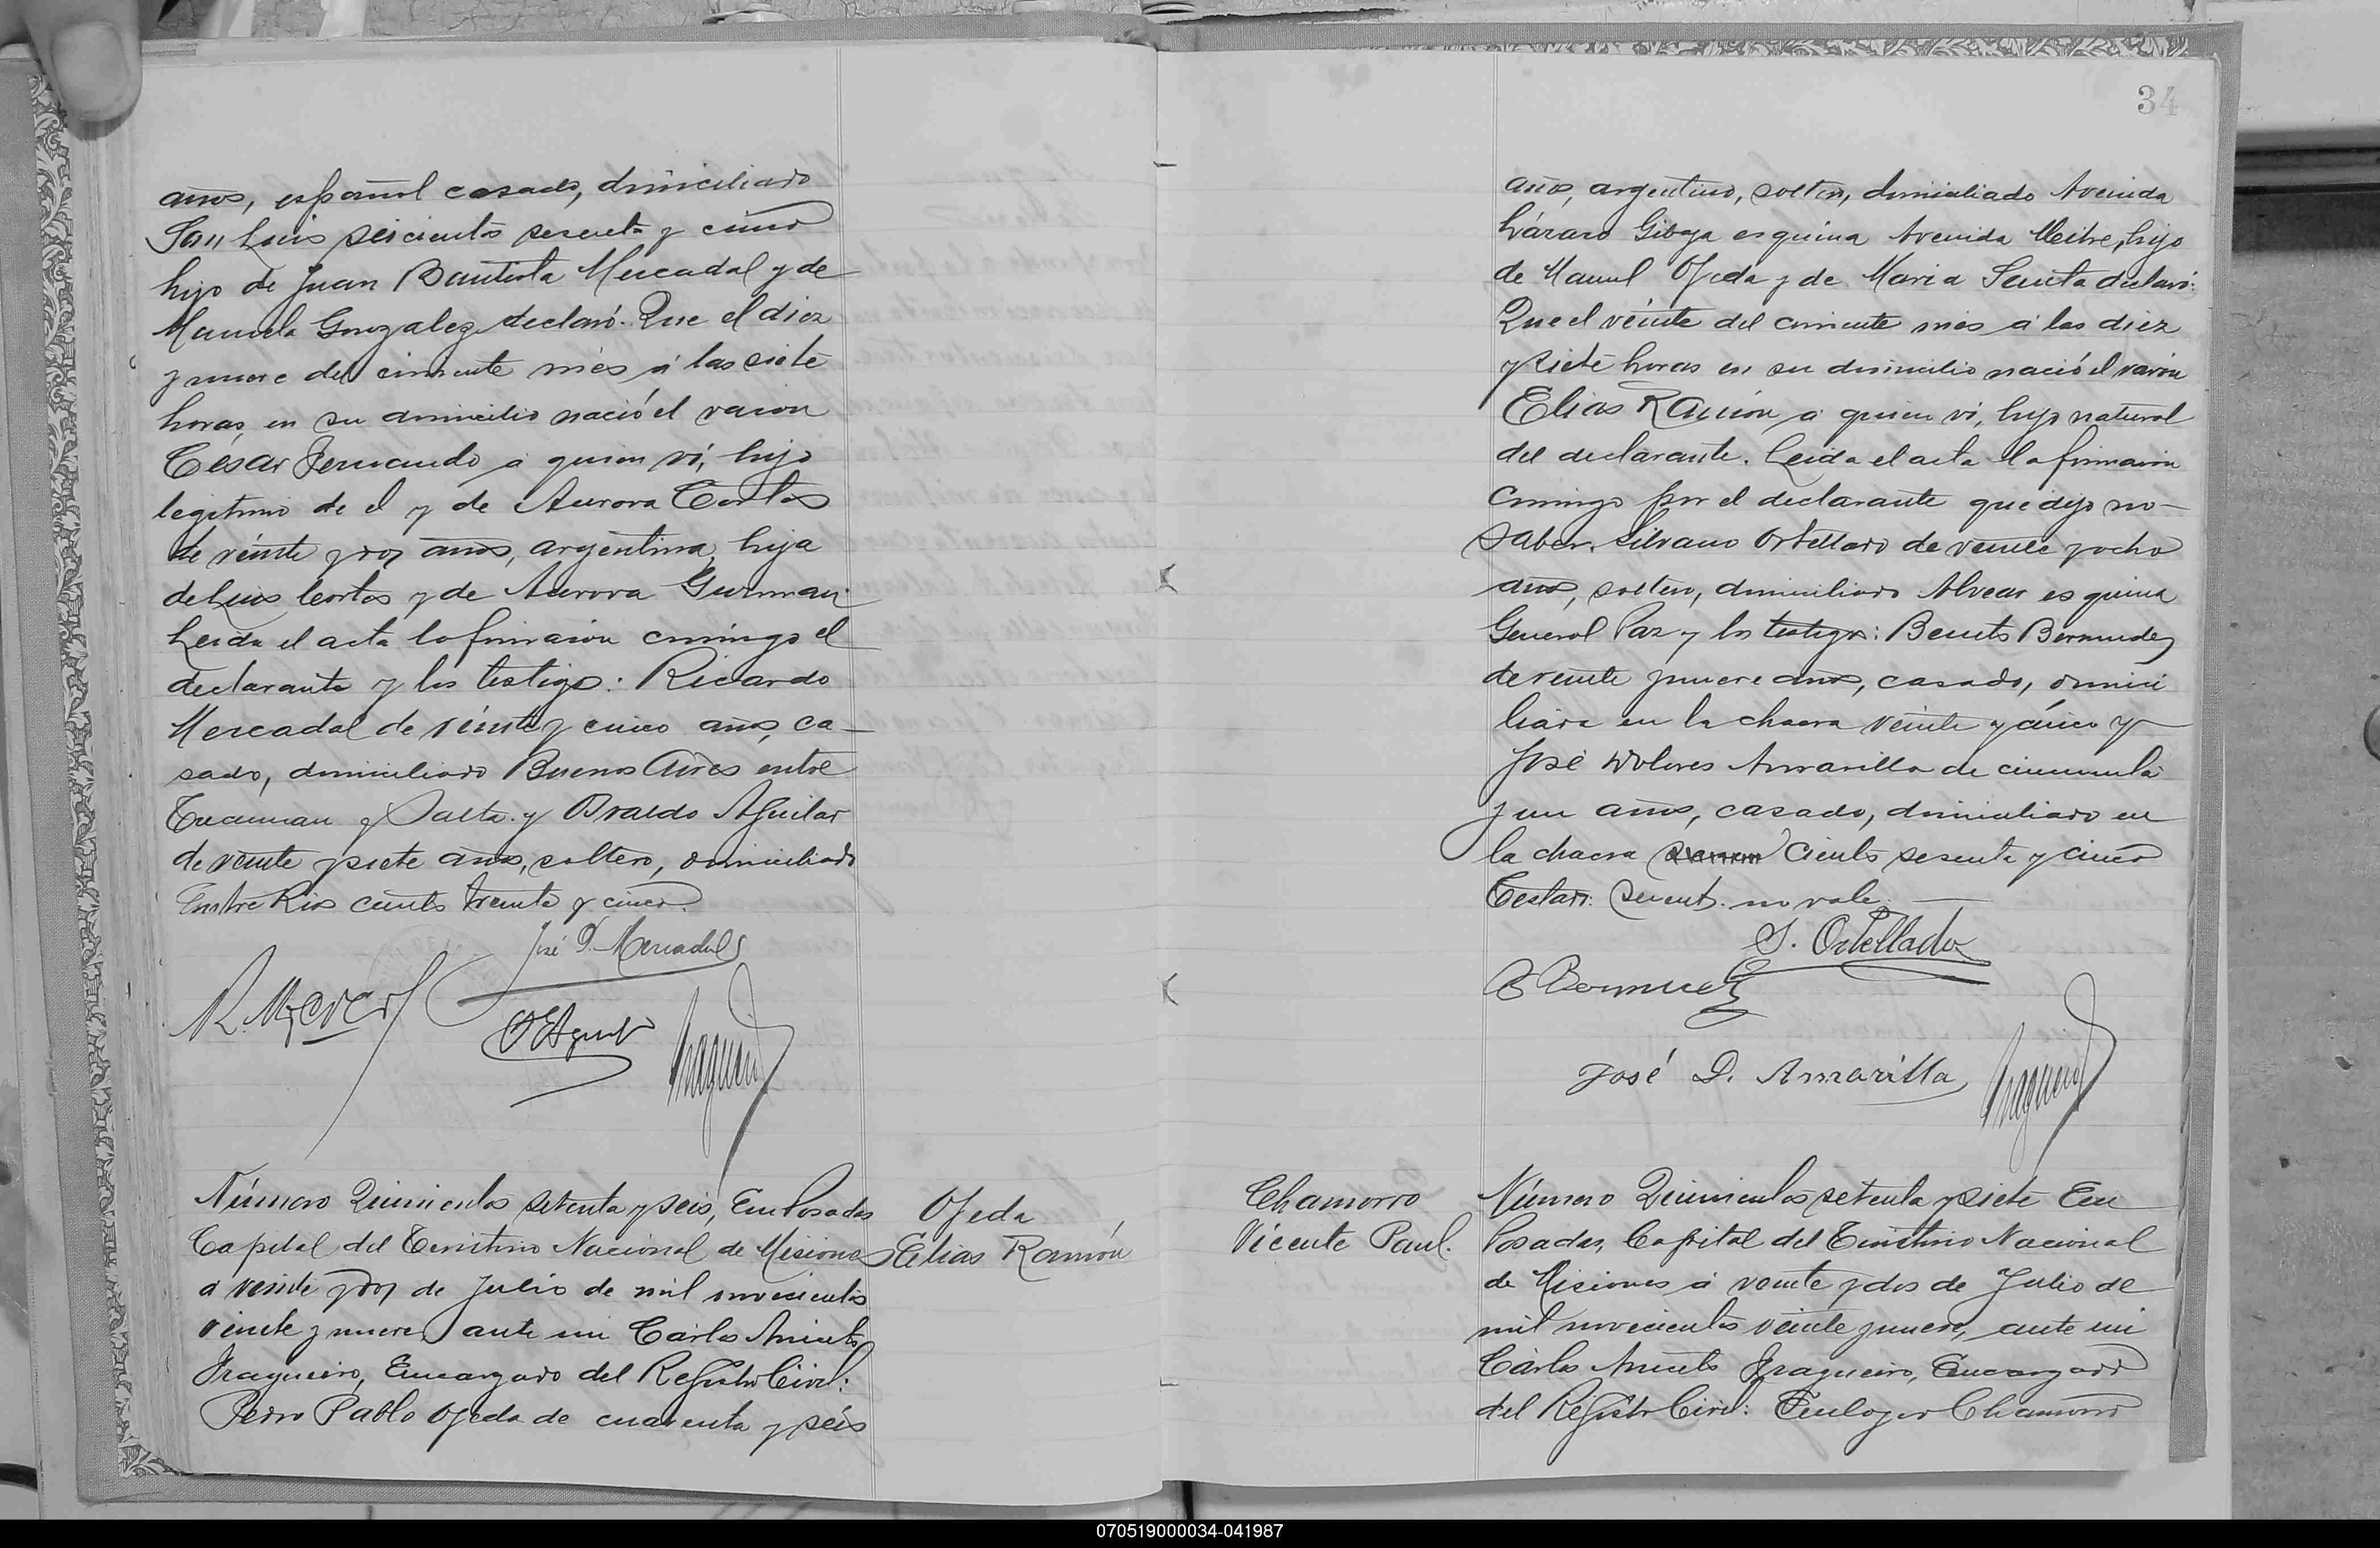 años, español casado, domiciliado
San Luis seicientos sesenta y cinco
hijo de Juan Bautista Mercadal y de
Manuela Gonzalez declaró: Que el diez
y nueve del corriente mes á las siete
horas, en su domicilio nació el varon
César Fernando a quien ví, hijo
legitimo de el y de Aurora Cortes
de veinte y dos años, argentina, hija
de Luis Cortes y de Aurora Guzman
Leida el acta la firmaron conmigo el
declarante y los testigos: Ricardo
Mercadal de veinte y cinco años, ca-
sado, domiciliado Buenos Aires entre
Tucuman y Salta y Osvaldo Aguilar
de veinte y siete años, soltero, domiciliado
Entre Rios ciento treinta y cinco.
José P. Mercadal
Número Quinientos setenta y seis, En Posadas
Capital del Territorio Nacional de Misiones
a veinte y dos de Julio de mil novecientos
veinte y nueve, ante mi Cárlos Aniceto
Fragueiro, Encargado del Registro Civil:
Pedro Pablo Ojeda de cuarenta y seis
Ojeda
Elias Ramón
34
años, argentino, soltero, domiciliado Avenida
Lázaro Gibaja esquina Avenida Mitre, hijo
de Manuel Ojeda y de Maria declaró:
Que el veinte del corriente mes a las diez
y siete horas en su domicilio nació el varón
Elias Ramón a quien vi, hijo natural
del declarante. Leida el acta la firmaron
conmigo por el declarante que dijo no-
saber. Silvano Ortellado de veinte y ocho
años, soltero, domiciliado Alvear esquina
General Paz y los testigos: Benito Bermudez
de veinte y nueve años, casado, domici
liado en la chacra veinte y cinco y
José Dolores Amarilla de cincuenta
y un años, casado, domiciliado en
la chacra ciento sesenta y cinco
Testado: no vale.
S. Ortellado
B Bermudez
José D. Amarilla
Chamorro
Vicente Paul.
Número Quinientos setenta y siete En
Posadas, Capital del Territorio Nacional
de Misiones á veinte y dos de Julio de
mil novecientos veinte y nueve, ante mi
Cárlos Aniceto Fragueiro, Encargado
del Registro Civil: Eulogio Chamorro
070519000034-041987